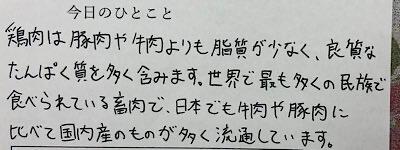 今日のひとこと
鶏肉は豚肉や牛肉よりも脂質が少なく、良質な
たんぱく質を多く含みます。世界で最も多くの民族で
食べられている畜肉で、日本でも牛肉や豚肉に
比べて国内産のものが多く流通しています。